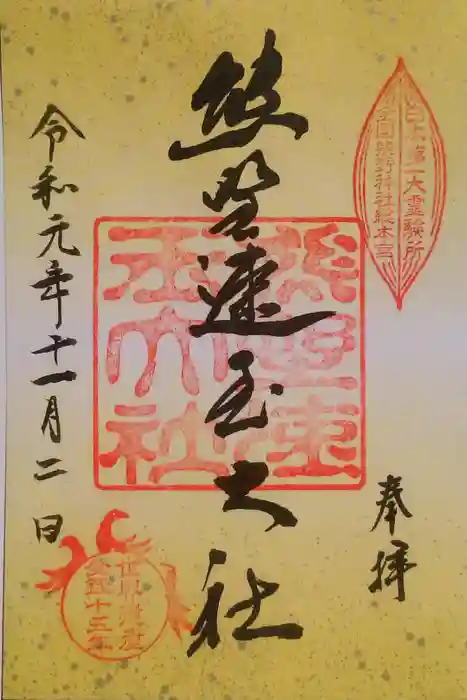 日本第一大霊験所
全国熊野神社総本宮
奉拝
熊野速玉大社
熊野速玉大社
令和元年十一月二日